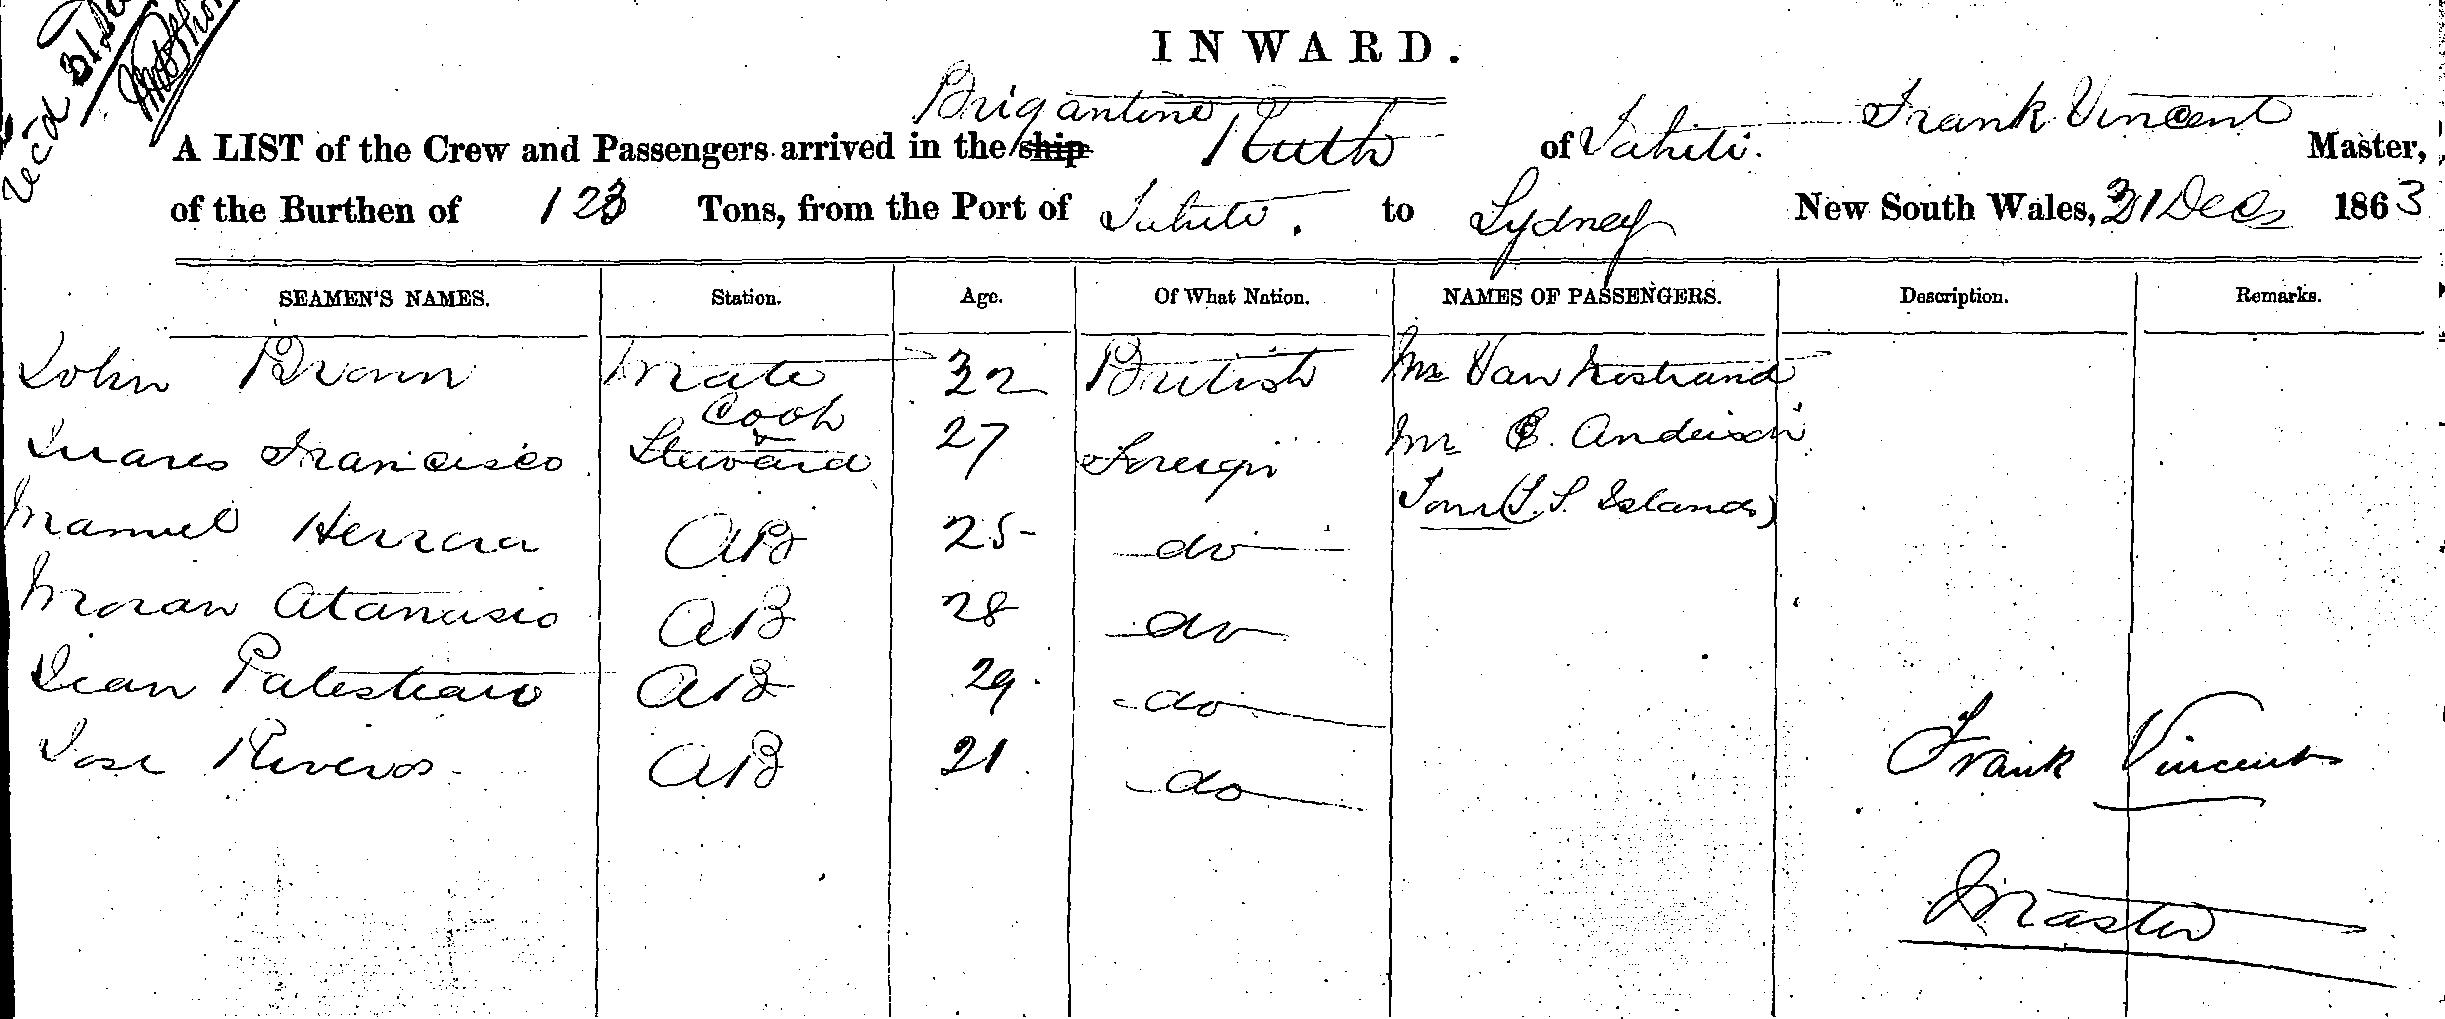 Rec'd 31 Dec
INWARD.
A LIST of the Crew and Passengers arrived in the ship Brigantine Ruth of Tahiti. Frank Vincent Master,
of the Burthen of 123 Tons, from the Port of Tahiti. to Sydney New South Wales, 31 Dec 1863
SEAMEN'S NAMES. Station. Age. Of What Nation. NAMES OF PASSENGERS. Description. Remarks.
John Brown Mate 32 British Mr Van Nostrand
Juares Francisco Cook & Steward 27 Foreign Mr C. Anderson
Tom (S. S. Islands)
Manuel Herrera AB 25 do
Moran Atanasio AB 28 do
Jean AB 29. do
Jose Riveros. AB 21 do
Frank Vincent
Master